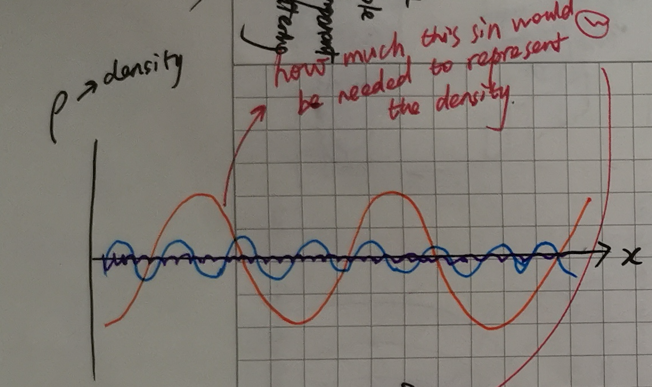 ρ → density
how much this sin would
be needed to represent
the density.
x